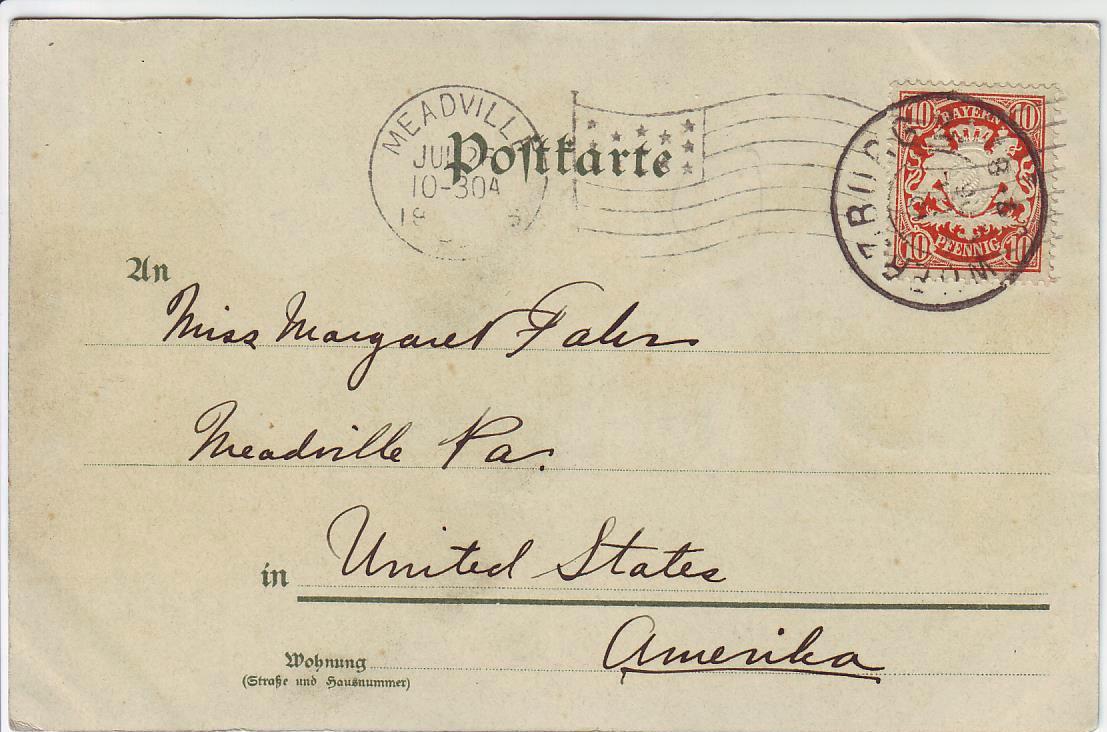 MEADVILL
JUL
10-30A
18
Postkarte
10 BAYERN 10
10 PFENNIG 10
An
Miss Margaret
Meadville Pa.
in United States
Amerika
Wohnung
(Straße und Hausnummer)